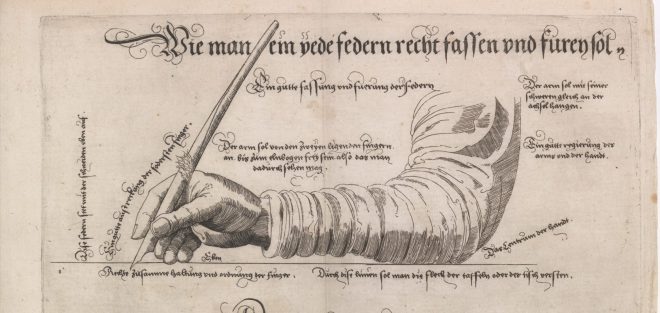 Wie man ein yede federn recht fassen vnd füren sol
Ein gutte fassung vnd fuerung der federn
Der arm sol mit seiner
schweren gleich an der
achsel hangen.
Der arm sol von den zweyen ligenden fingern
an bis zum elnbogen fest sein also das man
dadurch sehen mag.
Ein gutte regierung der
arms vnd der handt.
Dise federn sol mit der schneiden eben auf
Ein gutte ausstreckung der fordersten finger.
Eben
Das Centrum der handt.
Rechte zusamme haltung vnd ordnung der finger.
Durch dise linien sol man die flech der taffeln oder des tisch versten.